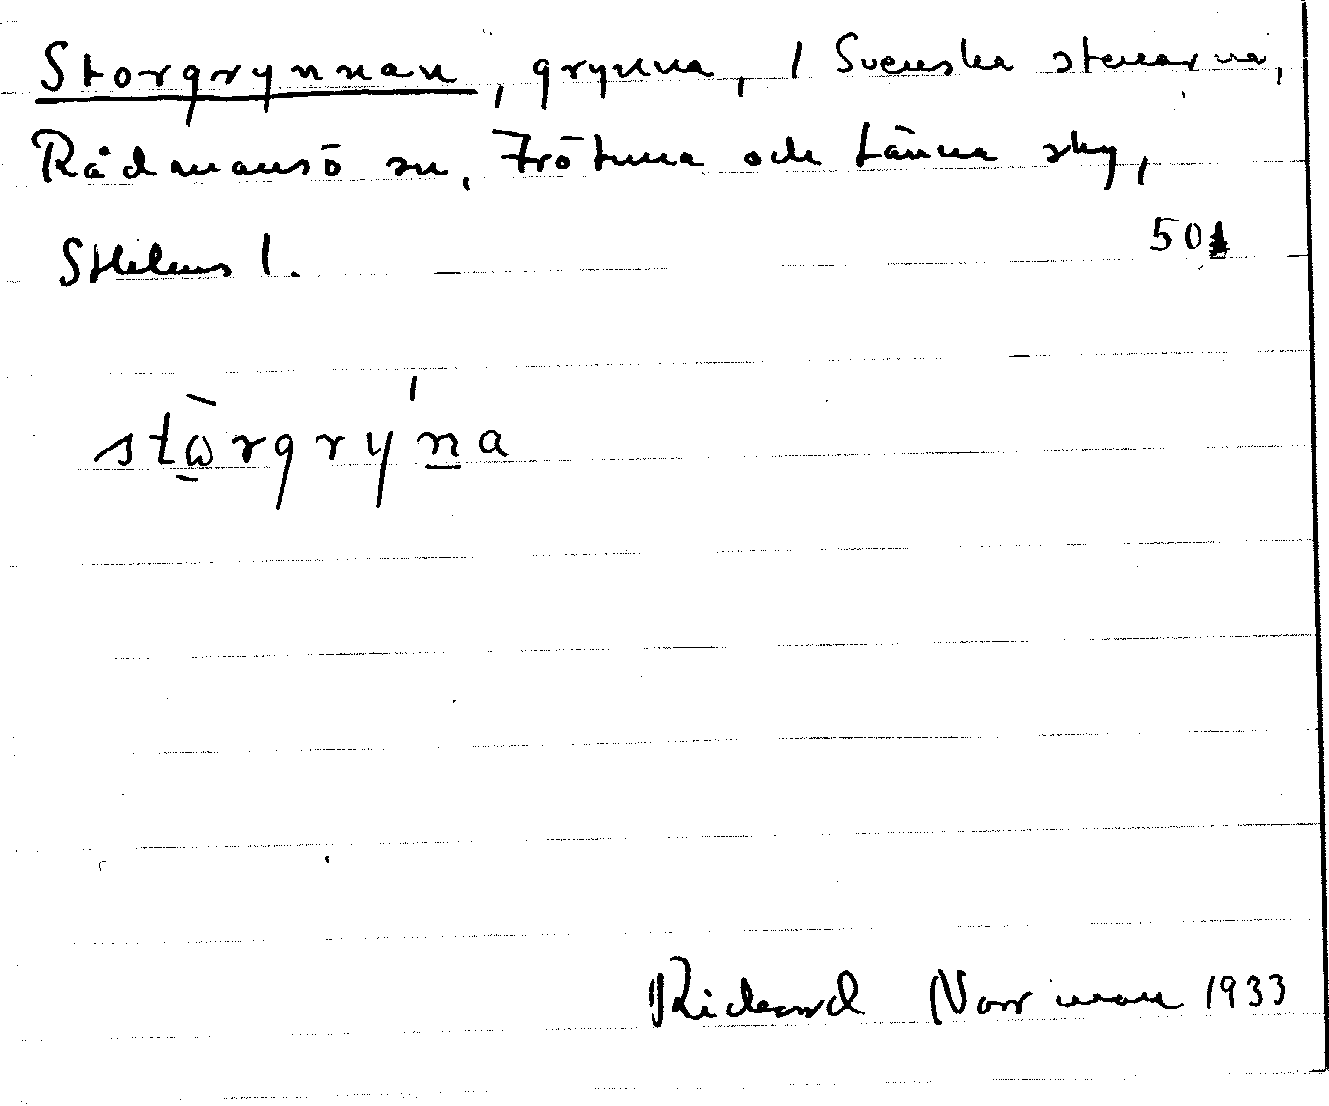 Storgrynnan, grynna, i Svenska stenarna,
Rådmansö sn, Frötuna och Länna sky,
Sthlms l.
50
stωrgryna
Rickard Norrman 1933